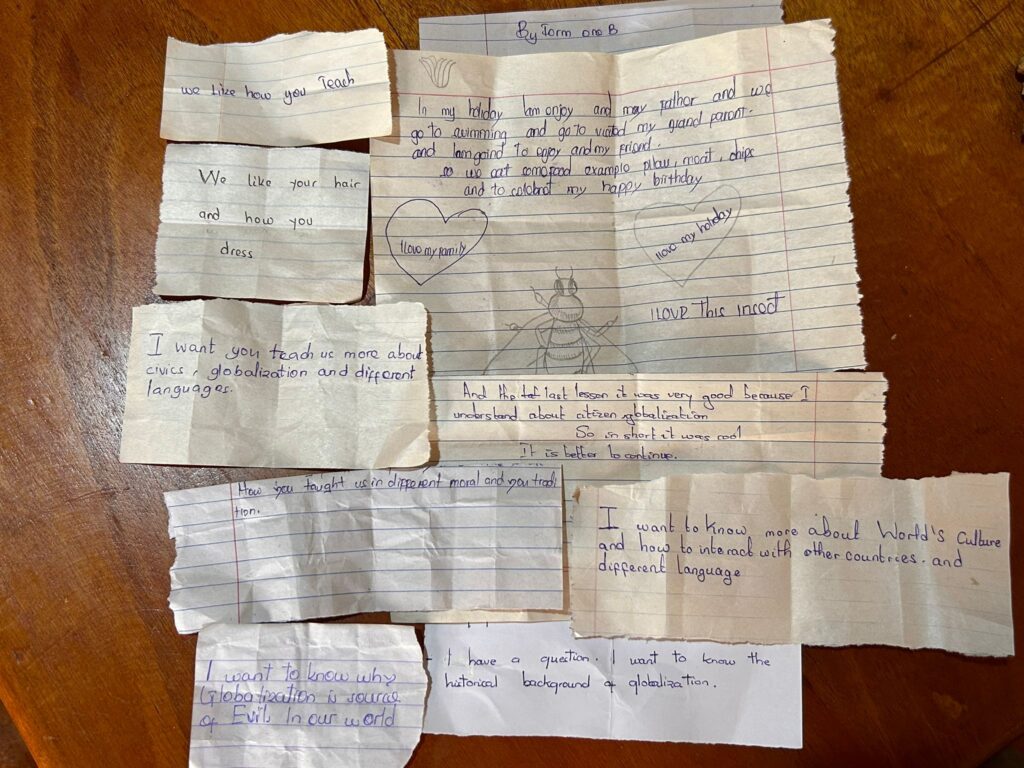 By Form one B
we like how you Teach
In my holiday Iam enjoy and may father and we
go to swimming and go to visited my grand parent.
and Iam goind to enjoy and my friend.
so we eat some food example pilau, meat, chips
and to celebrat my happy birthday
I love my family
I love my holiday
I LOVE This insect
We like your hair
and how you
dress
I want you teach us more about
civics, globalization and different
languages.
And the last lesson it was very good because I
understand about citizen globalization
So in short it was cool
It is better to continue.
How you taught us in different moral and you tradi
tion.
I want to know more about World's Culture
and how to interact with other countries. and
different language
I want to know why
Globalization is source
of Evils In our world
I have a question. I want to know the
historical background of globalization.